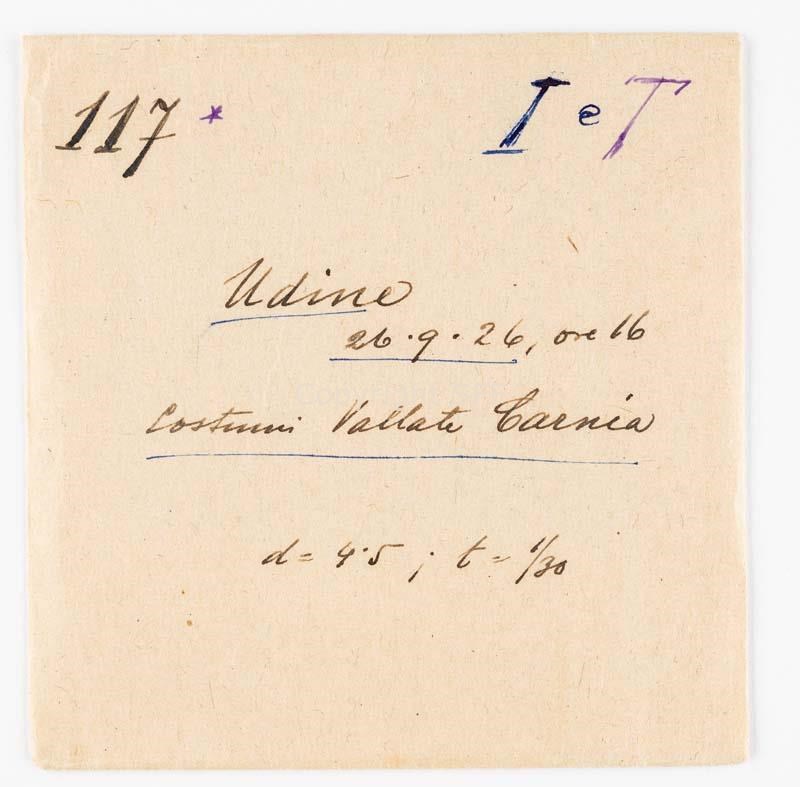 117 * I e T
Udine
26.9.26, ore 16
Costumi Vallate Carnia
d = 4.5 ; t = 1/30